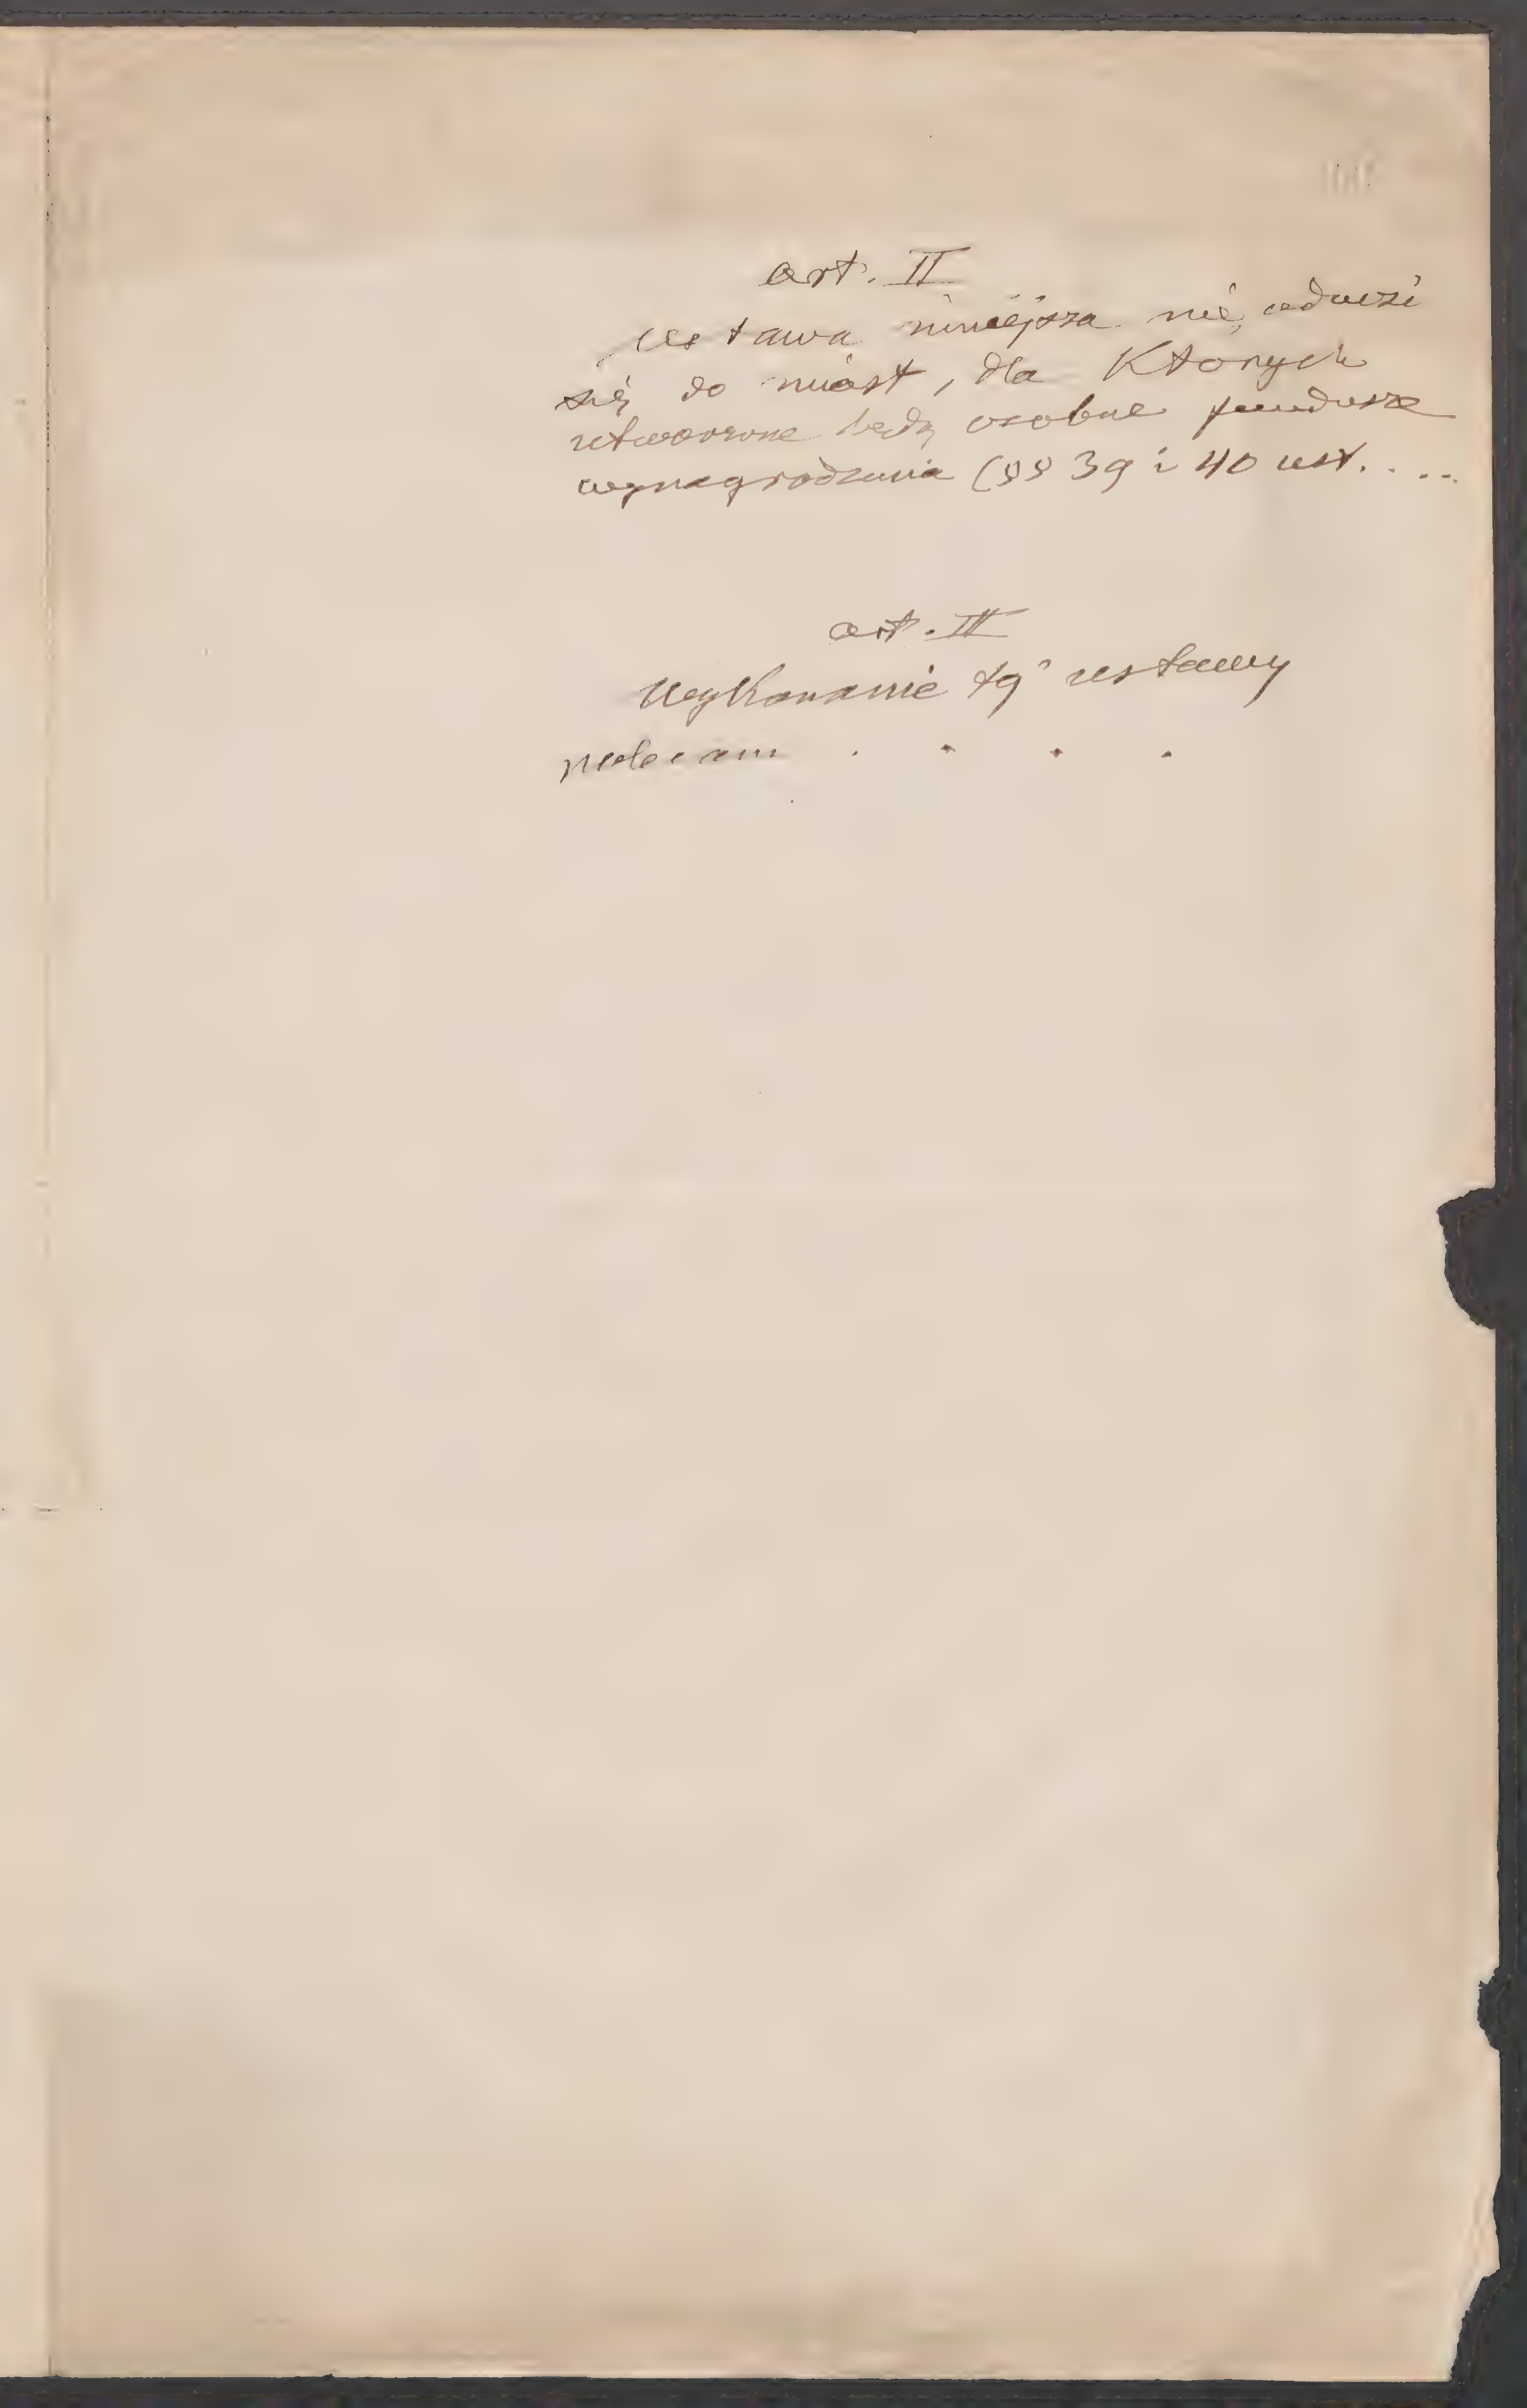 art. II
Ustawa niniejsza nie odnosi
się do miast, dla których
utworzone będą osobne fundusze
wynagrodzenia (§§ 39 i 40 ust. . ..
art. III
Wykonanie tej ustawy
polecam . . . .